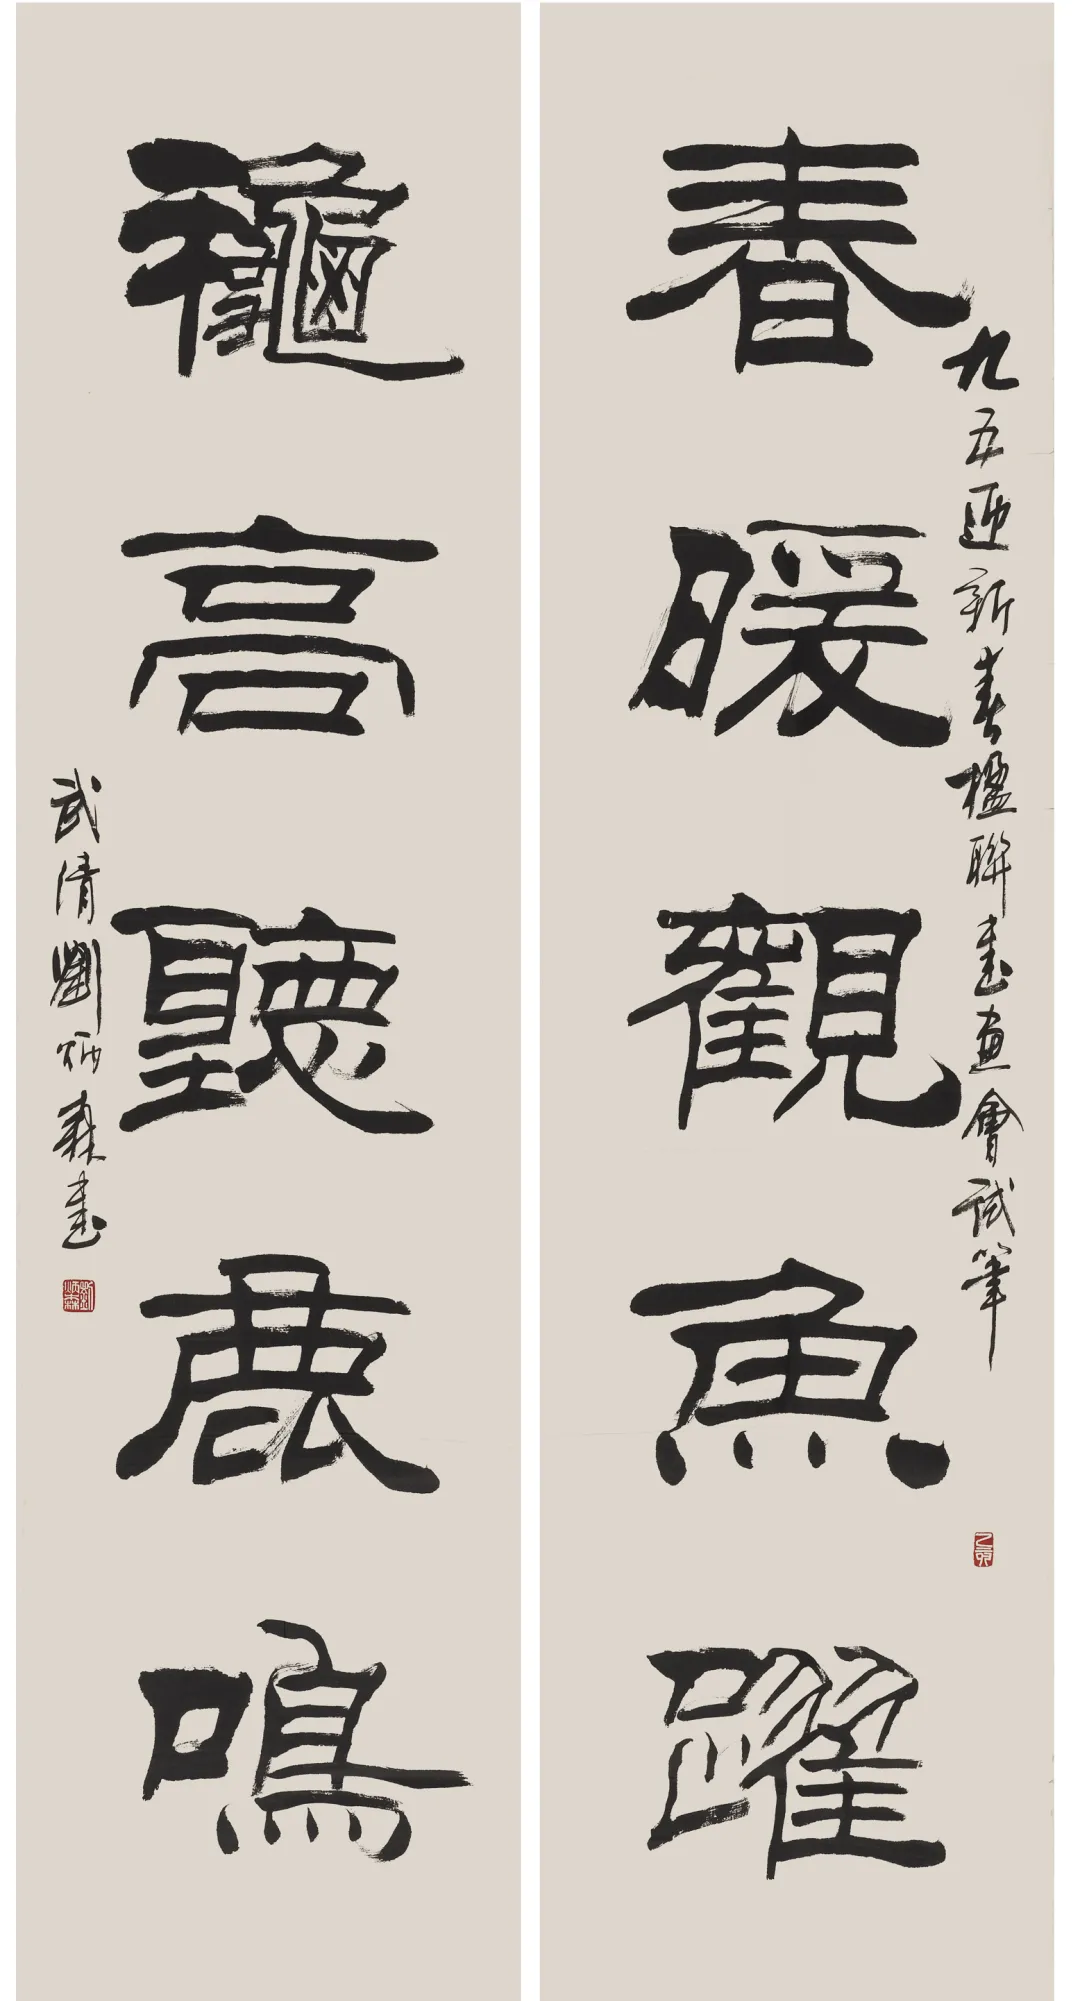 春暖觀魚躍
九五迎新春楹聯書画會試筆
龝高聽鹿鳴
武清劉炳森書
劉炳森